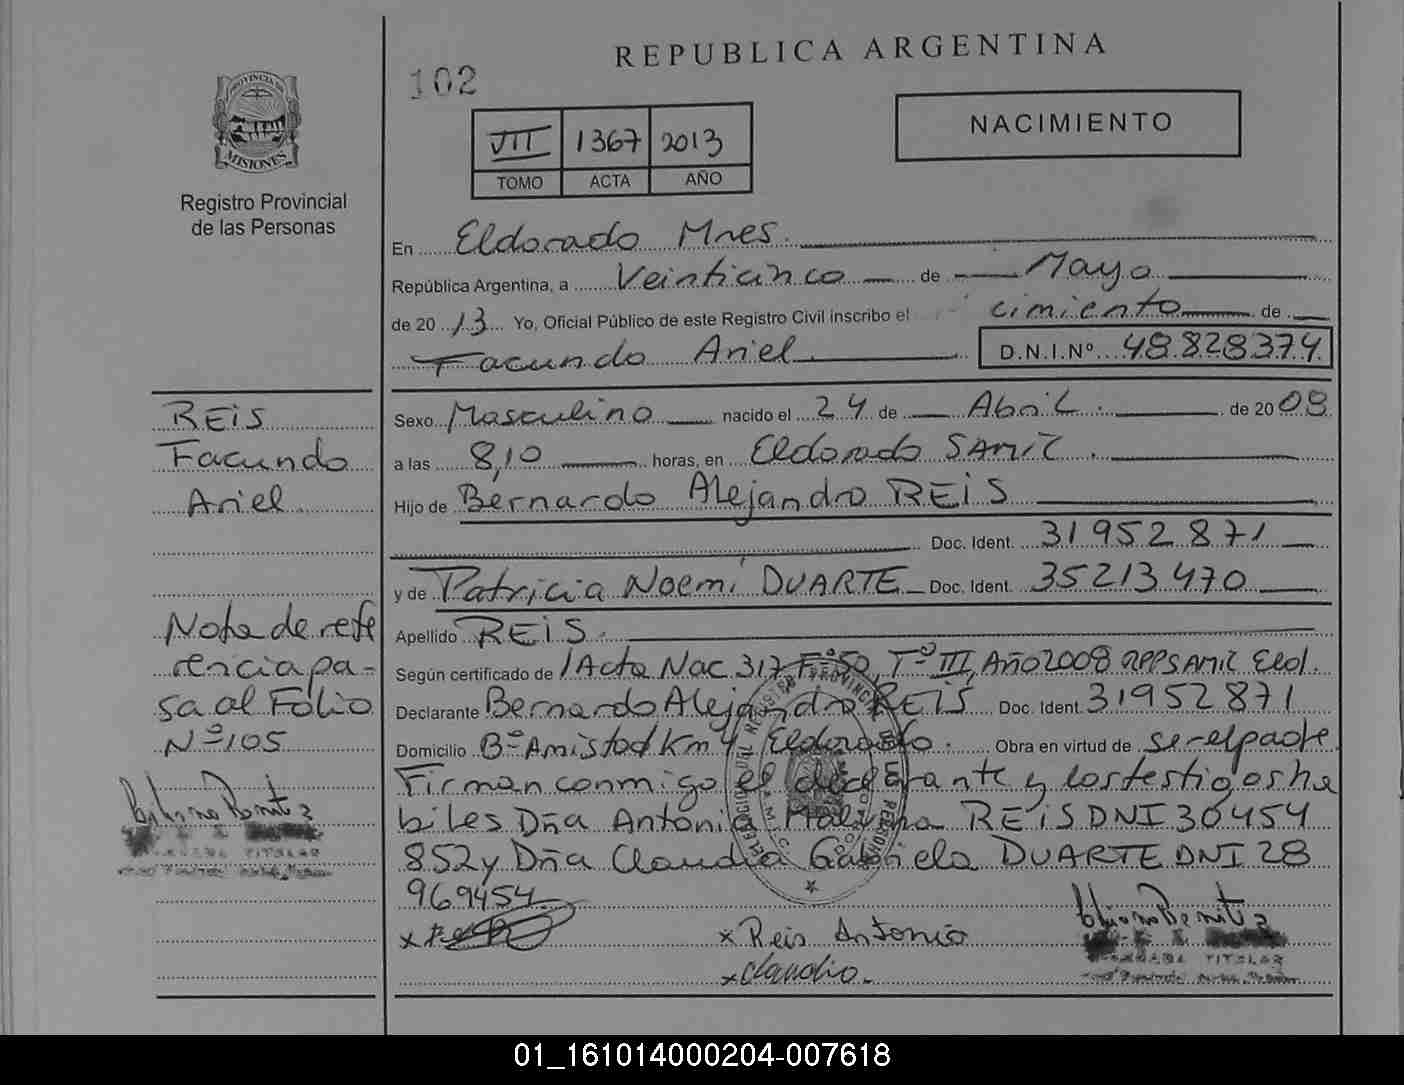 REPUBLICA ARGENTINA
102
NACIMIENTO
VII 1367 2013
TOMO ACTA AÑO
PROVINCIA DE
MISIONES
Registro Provincial
de las Personas
En Eldorado Mnes.
República Argentina, a Veinticinco de Mayo
de 20 13 Yo, Oficial Público de este Registro Civil inscribo el cimiento de
Facundo Ariel D.N.I.Nº 48828374
REIS
Facundo
Ariel.
Sexo Masculino nacido el 24 de Abril. de 20 08
a las 8,10 horas, en Eldorado SAMIC.
Hijo de Bernardo Alejandro REIS
Doc. Ident. 31952871
y de Patricia Noemí DUARTE Doc. Ident. 35213470
Apellido REIS.
Según certificado de 1 Acta Nac 317 Fº50, Tº III, Año 2008 RPPSAMIC Eld.
Declarante Bernardo Alejandro REIS Doc. Ident. 31952871
Domicilio Bº Amistad Km 4 Eldorado. Obra en virtud de ser el padre
Firman conmigo el declarante y los testigos há
biles Dña Antonia REIS DNI 30454
852 y Dña Claudia Gabriela DUARTE DNI 28
969454
Nota de refe
rencia pa-
sa al Folio
Nº 105
x Reis Antonia
x Claudia.
TITULAR
TITULAR
01_161014000204-007618